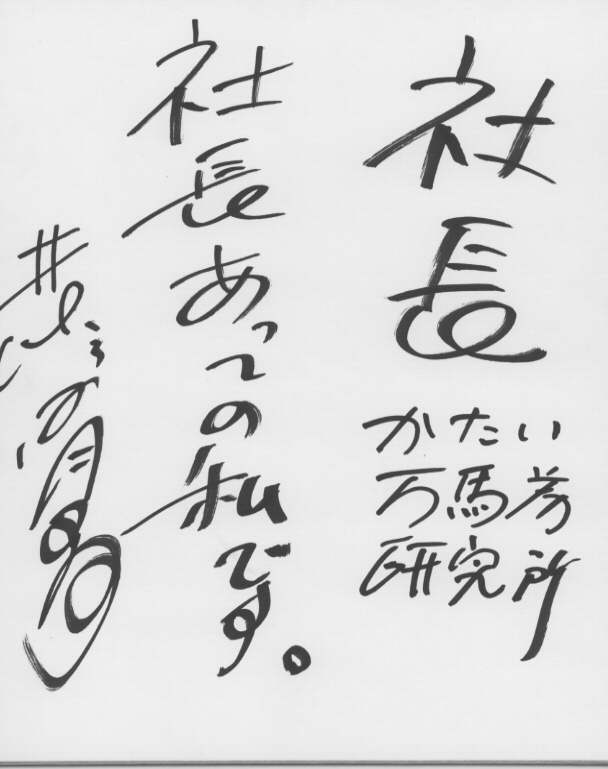 社長
かたい
万馬券
研究所
社長あっての私です。